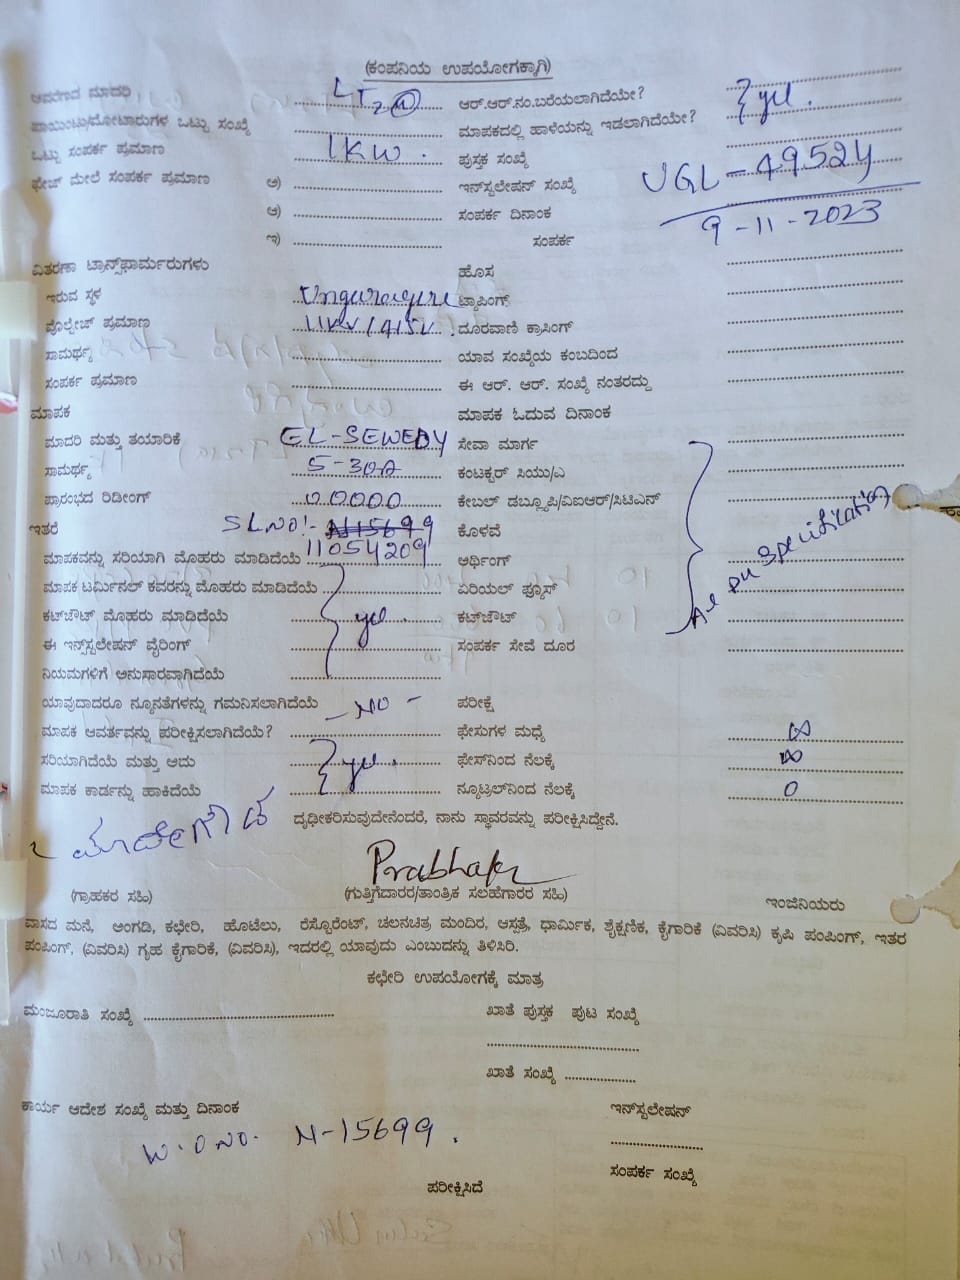 (ಕಂಪನಿಯ ಉಪಯೋಗಕ್ಕಾಗಿ)
ಆವರಣದ ಮಾದರಿ LT2(a) ಆರ್.ಆರ್.ನಂ.ಬರೆಯಲಾಗಿದೆಯೇ? } yes.
ಪಾಯಿಂಟು/ಮೋಟಾರುಗಳ ಒಟ್ಟು ಸಂಖ್ಯೆ ಮಾಪಕದಲ್ಲಿ ಹಾಳೆಯನ್ನು ಇಡಲಾಗಿದೆಯೇ?
ಒಟ್ಟು ಸಂಪರ್ಕ ಪ್ರಮಾಣ 1KW. ಪುಸ್ತಕ ಸಂಖ್ಯೆ
ಫೇಜ್ ಮೇಲೆ ಸಂಪರ್ಕ ಪ್ರಮಾಣ ಅ) ಇನ್‌ಸ್ಟಲೇಷನ್ ಸಂಖ್ಯೆ UGL-49524
ಆ) ಸಂಪರ್ಕ ದಿನಾಂಕ 9-11-2023
ಇ) ಸಂಪರ್ಕ
ವಿತರಣಾ ಟ್ರಾನ್ಸ್‌ಫಾರ್ಮರುಗಳು ಹೊಸ
ಇರುವ ಸ್ಥಳ ಟ್ಯಾಪಿಂಗ್
ವೋಲ್ಟೇಜ್ ಪ್ರಮಾಣ 11KV/415V. ದೂರವಾಣಿ ಕ್ರಾಸಿಂಗ್
ಸಾಮರ್ಥ್ಯ ಯಾವ ಸಂಖ್ಯೆಯ ಕಂಬದಿಂದ
ಸಂಪರ್ಕ ಪ್ರಮಾಣ ಈ ಆರ್. ಆರ್. ಸಂಖ್ಯೆ ನಂತರದ್ದು
ಮಾಪಕ ಮಾಪಕ ಓದುವ ದಿನಾಂಕ
ಮಾದರಿ ಮತ್ತು ತಯಾರಿಕೆ EL-SEWEDY ಸೇವಾ ಮಾರ್ಗ
ಸಾಮರ್ಥ್ಯ 5-30A ಕಂಟಕ್ಟರ್ ಸಿಯು/ಎ
ಪ್ರಾರಂಭದ ರಿಡೀಂಗ್ 00000 ಕೇಬಲ್ ಡಬ್ಲ್ಯೂಪಿ/ವಿಐಆರ್/ಸಿಟಿಎನ್ As per specification
ಇತರೆ SLNO:- N15699 ಕೊಳವೆ
ಮಾಪಕವನ್ನು ಸರಿಯಾಗಿ ಮೊಹರು ಮಾಡಿದೆಯೆ 11054209 ಅರ್ಥಿಂಗ್
ಮಾಪಕ ಟರ್ಮಿನಲ್ ಕವರನ್ನು ಮೊಹರು ಮಾಡಿದೆಯೆ ಏರಿಯಲ್ ಫ್ಯೂಸ್
ಕಟ್‌ಔಟ್ ಮೊಹರು ಮಾಡಿದೆಯೆ } yes. ಕಟ್‌ಔಟ್
ಈ ಇನ್ಸ್‌ಸ್ಟಲೇಷನ್ ವೈರಿಂಗ್ ಸಂಪರ್ಕ ಸೇವೆ ದೂರ
ನಿಯಮಗಳಿಗೆ ಅನುಸಾರವಾಗಿದೆಯೆ
ಯಾವುದಾದರೂ ನ್ಯೂನತೆಗಳನ್ನು ಗಮನಿಸಲಾಗಿದೆಯೆ - NO - ಪರೀಕ್ಷೆ
ಮಾಪಕ ಆವರ್ತವನ್ನು ಪರೀಕ್ಷಿಸಲಾಗಿದೆಯೆ? ಫೇಸುಗಳ ಮಧ್ಯೆ ∞
ಸರಿಯಾಗಿದೆಯೆ ಮತ್ತು ಅದು } yes. ಫೇಸ್‌ನಿಂದ ನೆಲಕ್ಕೆ ∞
ಮಾಪಕ ಕಾರ್ಡನ್ನು ಹಾಕಿದೆಯೆ ನ್ಯೂಟ್ರಲ್‌ನಿಂದ ನೆಲಕ್ಕೆ 0
ಮಾದೇಗೌಡ ದೃಢೀಕರಿಸುವುದೇನೆಂದರೆ, ನಾನು ಸ್ಥಾವರವನ್ನು ಪರೀಕ್ಷಿಸಿದ್ದೇನೆ.
Prabhakr
(ಗ್ರಾಹಕರ ಸಹಿ) (ಗುತ್ತಿಗೆದಾರರ/ತಾಂತ್ರಿಕ ಸಲಹೆಗಾರರ ಸಹಿ) ಇಂಜಿನಿಯರು
ವಾಸದ ಮನೆ, ಅಂಗಡಿ, ಕಛೇರಿ, ಹೊಟೇಲು, ರೆಸ್ಟೊರೆಂಟ್, ಚಲನಚಿತ್ರ ಮಂದಿರ, ಆಸ್ಪತ್ರೆ, ಧಾರ್ಮಿಕ, ಶೈಕ್ಷಣಿಕ, ಕೈಗಾರಿಕೆ (ವಿವರಿಸಿ) ಕೃಷಿ ಪಂಪಿಂಗ್, ಇತರ
ಪಂಪಿಂಗ್, (ವಿವರಿಸಿ) ಗೃಹ ಕೈಗಾರಿಕೆ, (ವಿವರಿಸಿ), ಇದರಲ್ಲಿ ಯಾವುದು ಎಂಬುದನ್ನು ತಿಳಿಸಿರಿ.
ಕಛೇರಿ ಉಪಯೋಗಕ್ಕೆ ಮಾತ್ರ
ಮಂಜೂರಾತಿ ಸಂಖ್ಯೆ ಖಾತೆ ಪುಸ್ತಕ ಪುಟ ಸಂಖ್ಯೆ
ಖಾತೆ ಸಂಖ್ಯೆ
ಕಾರ್ಯ ಆದೇಶ ಸಂಖ್ಯೆ ಮತ್ತು ದಿನಾಂಕ ಇನ್‌ಸ್ಟಲೇಷನ್
W.O NO. N-15699.
ಸಂಪರ್ಕ ಸಂಖ್ಯೆ
ಪರೀಕ್ಷಿಸಿದೆ